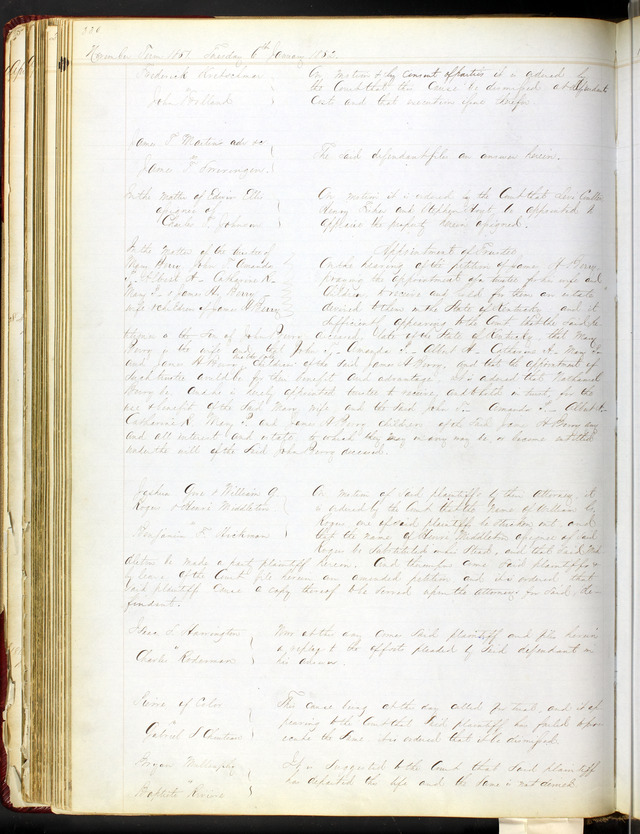 November Term 1851 Tuesday 6th January 1852.
Frederick
On motion & by consent of parties it is ordered by
the Court that this Cause be dismissed at defendants
John Holland
Costs and that execution issue therefor
James T. Martin adv &c
The said defendant files an answer herein.
James T. Swearingen
In the matter of Edwin Ellis
On motion it is ordered by the Court that
assignee of
Henry and Stephen be appointed to
Charles Johnson
appraise the property herein assigned.
In the matter of the
Appointment of Trustee
Mary Berry John Amanda
On the hearing of the petition of James H Berry
Albert A Catharine K
praying the appointment of a trustee for his wife and
Mary & James H Berry
Children to receive and hold for them an estate
wife & children of James H Berry
devised to them in the State of Kentucky and it
sufficiently appearing to the Court that the said
is the Son of John Berry deceased late of the State of Kentucky that Mary
Berry is his wife and that John Amanda Albert A Catharine K Mary
and James H Berry children of the said James H Berry, and that the appointment of
such trustee would be for their benefit and advantage it is ordered that Nathaniel
Berry be and he is hereby appointed trustee to receive and to hold in trust, for the
use & benefit of the said Mary wife and the said John Amanda Albert A
Catharine K Mary and James H Berry children of the said James H Berry any
and all interest and estate to which they may in any way be or become entitled
under the will of the said John Berry deceased.
Joshua & William G
On motion of said plaintiffs by their Attorney it
& Henri Middleton
is ordered by the Court that the name of William G.
one of said plaintiffs be stricken out, and
Benjamin F. Hickman
that the name of Henri Middleton assignee of said
be substituted in his stead, and that said Mid
dleton be made a party plaintiff herein. And thereupon come said plaintiffs &
by leave of the Court file herein an amended petition, and it is ordered that
said plaintiffs cause a copy thereof to be served upon the attorney for said de-
fendant.
Isaac S. Harrington
Now at this day comes said plaintiff and files herein
a reply to the offsets pleaded by said defendant in
Charles
his answer.
of Color
This cause being at this day called for trial, and it ap
pearing to the Court that said plaintiff has failed to pro
Gabriel S Chouteau
secute the same it is ordered that it be dismissed.
Bryan Mullanphy
It is suggested to the Court that said plaintiff
has departed this life and the same is not denied
Baptiste